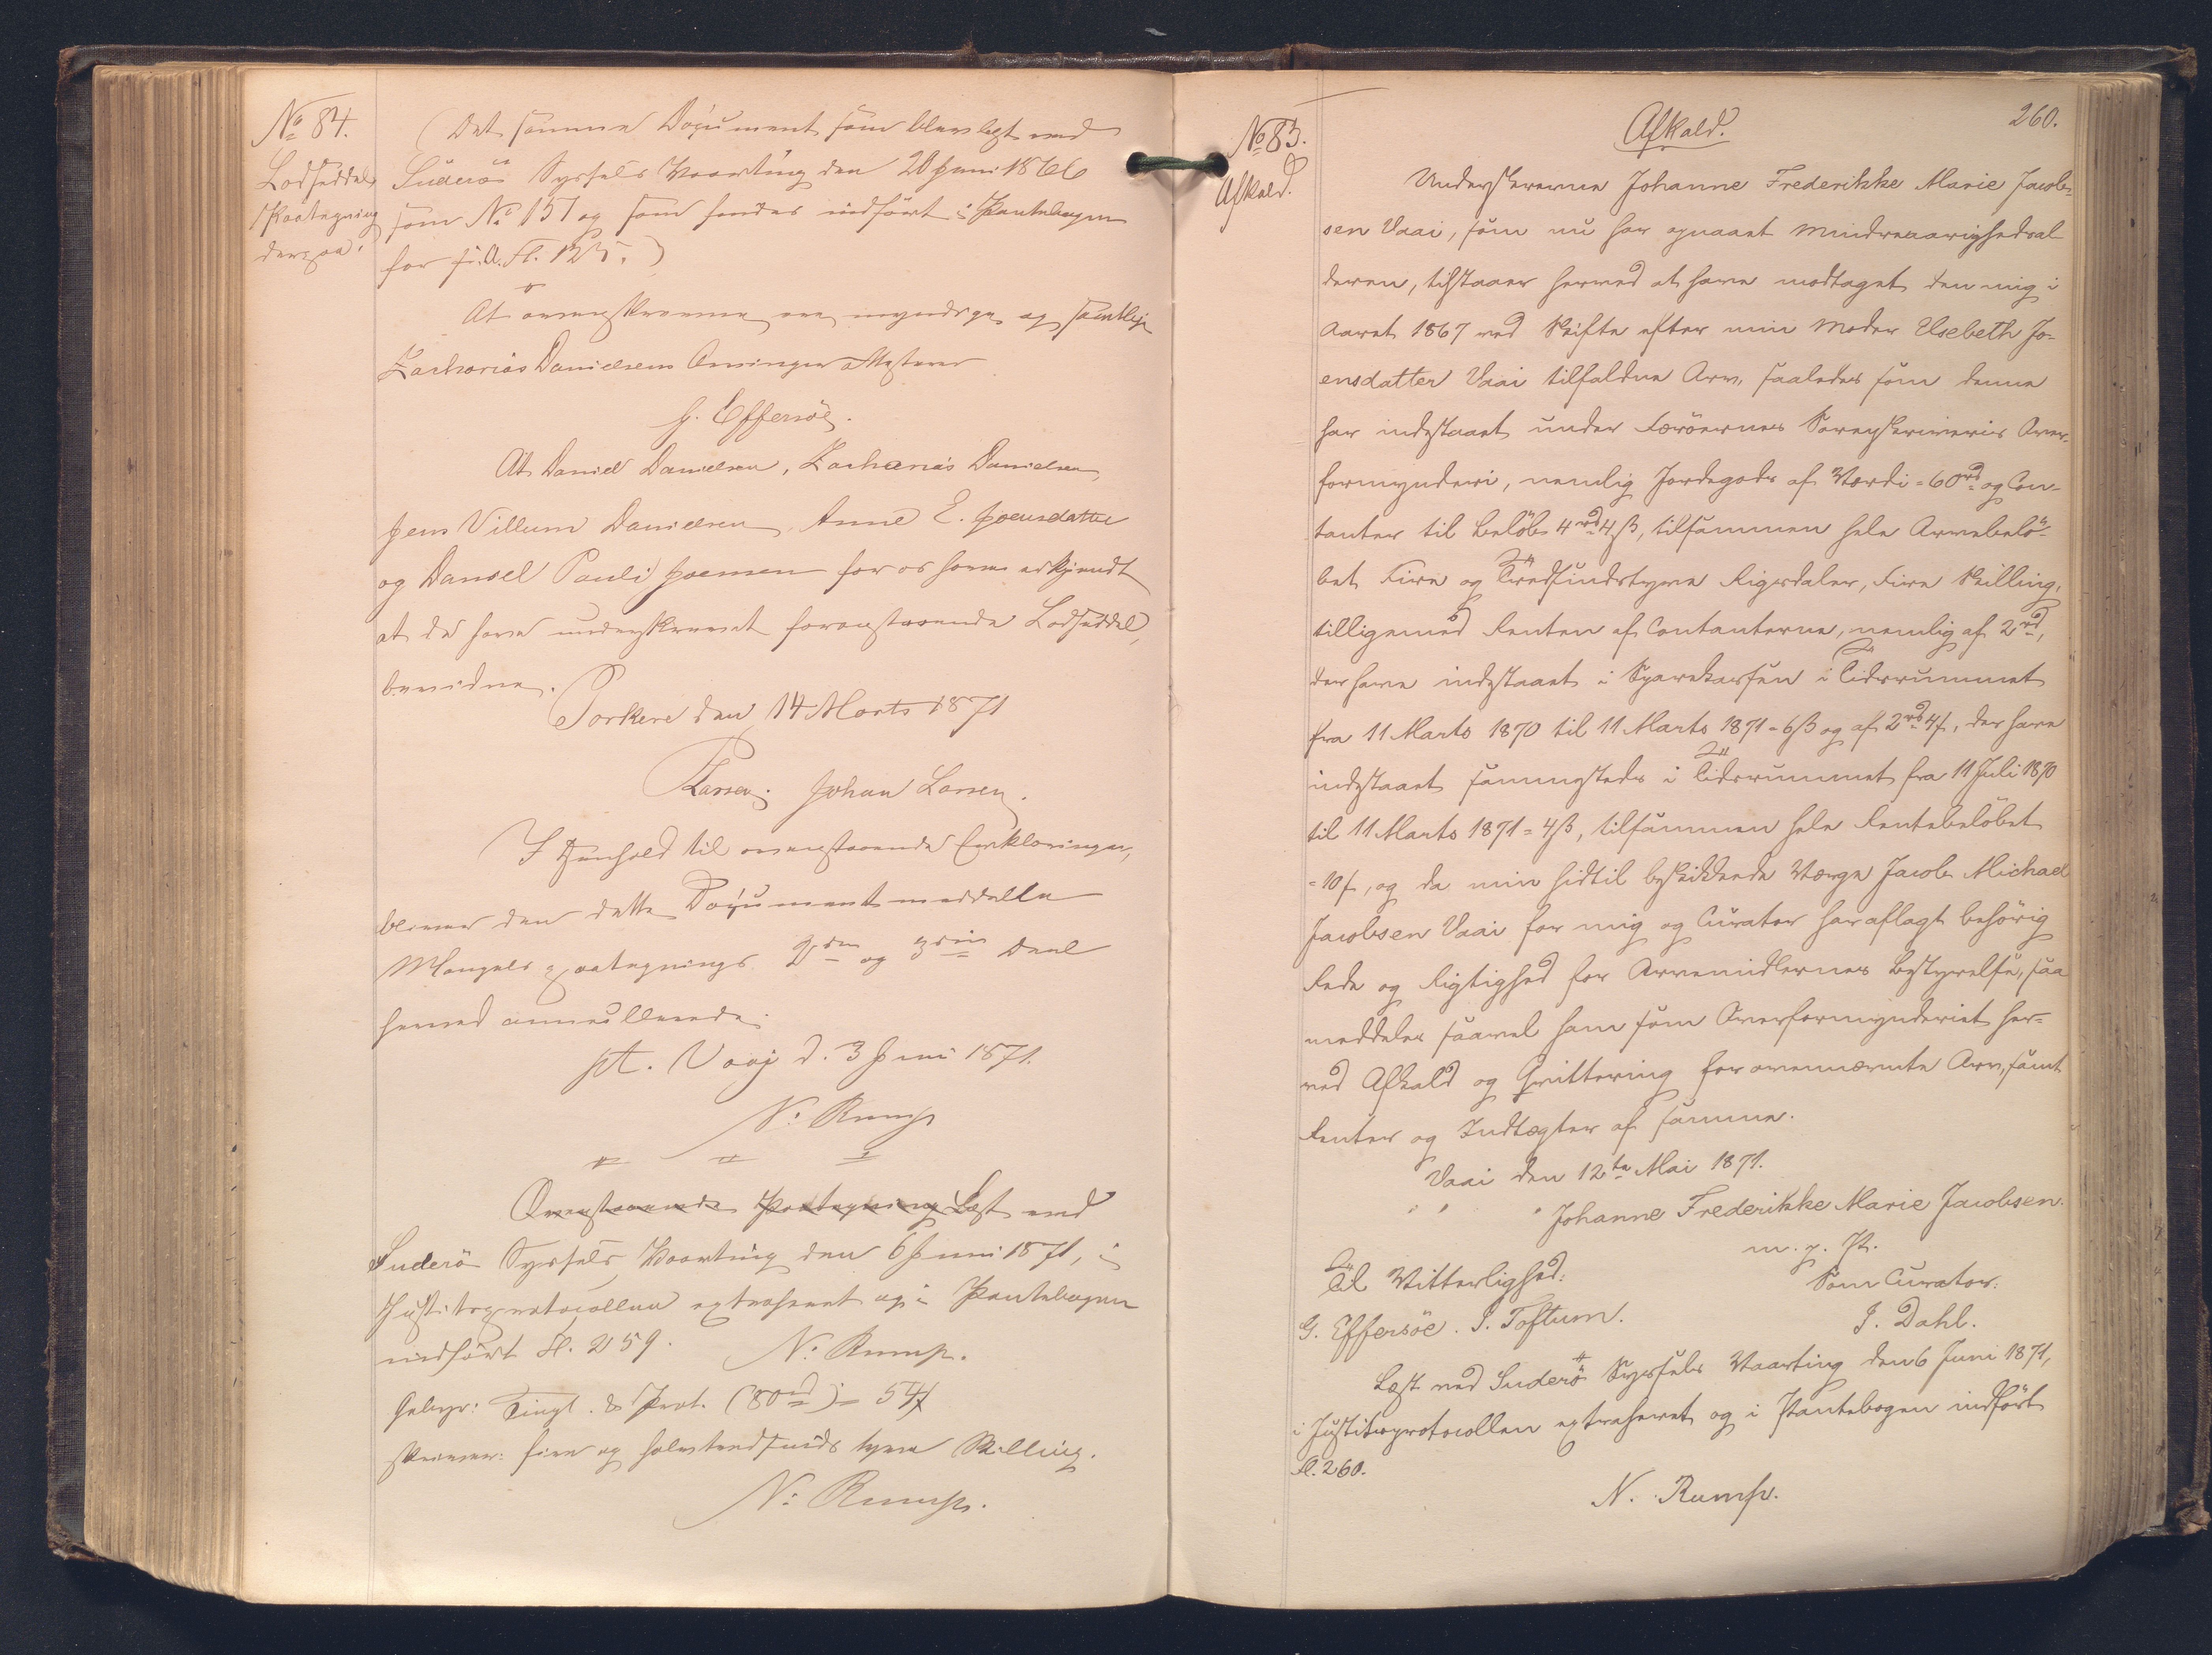 No 84.
Lodseddel
Paategning
derpaa.
(Det samme Document som blev læst ved
Suderö Syssels Vaarting den 20 Juni 1866
som No 151 og som findes indført i Pantebogen
for s. A. Fl. 125.)
At overnskrevne ere myndige og samtlige
Zacharias Danielsens Arvinger attesterer
G. Effersöe.
At Daniel Danielsen, Zacharias Danielsen
Jens Villum Danielsen, Anne E. Joensdatter
og Daniel Pauli Joensen for os have erkjendt
at de have underskrevet foranstaaende Lodseddel,
bevidne.
Porkere den 14 Marts 1871
Larsen. Johan Larsen.
I Henhold til ovenstaaende Erklæringer,
bliver den dette Document meddelte
Mangels paategnings 2den og 3die Deel
herved annullerede.
pt. Vaaj d. 3 Juni 1871.
N. Rump
Ovenstaaende Paategning Læst ved
Suderö Syssels Vaarting den 6 Juni 1871, i
Justitsprotocollen extraheret og i Pantebogen
indført Fl. 259. N. Rump.
Gebyr: Tingl. & Prot. (80 rd) = 54 ß
skriver: fire og halvtredsinds tyve Skilling.
N. Rump.
260.
No 83.
Afkald.
Afkald.
Underskrevne Johanne Frederikke Marie Jacob-
sen Vaai, som nu har opnaaet Mindreaarighedsal-
deren, tilstaaer herved at have modtaget den mig i
Aaret 1867 ved Skifte efter min Moder Elsebeth Jo-
ensdatter Vaai tilfaldne Arv, saaledes som denne
har indestaaet under Færöernes Sorenskriveries Over-
formynderi, nemlig Jordegods af Værdi = 60 rd og Con-
tanter til Beløb 4 rd 4 ß, tilsammen hele Arvebelö-
bet Fire og Tredsindstyve Rigsdaler, Fire Skilling,
tilligemed Renten af Contanterne, nemlig af 2 rd,
der have indestaaet i Sparekassen i Tidsrummet
fra 11 Marts 1870 til 11 Marts 1871 = 6 ß og af 2 rd 4 ß, der have
indestaaet sammesteds i Tidsrummet fra 11 Juli 1870
til 11 Marts 1871 = 4 ß, tilsammen hele Rentebeløbet
= 10 ß, og da min hidtil beskikkede Værge Jacob Michael
Jacobsen Vaai for mig og Curator har aflagt behörig
Rede og Rigtighed for Arvemidlernes Bestyrelse, saa
meddeles saavel ham som Overformynderiet her-
ved Afkald og Qvittering for ovennævnte Arv, samt
Renter og Indtægter af samme.
Vaai den 12te Mai 1871.
Johanne Frederikke Marie Jacobsen.
m. p. P.
Til Vitterlighed: Som Curator.
G. Effersöe. I. Toftum. J. Dahl.
Læst ved Suderö Syssels Vaarting den 6 Juni 1871,
i Justitsprotocollen extraheret og i Pantebogen indført
Fl. 260.
N. Rump.